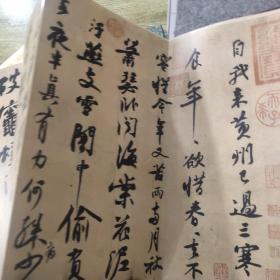 自我来黄州已過三寒
食年年欲惜春春去不
容惜今年又苦雨兩月秋
蕭瑟卧聞海棠花泥
汙燕支雪闇中偷負
去夜半真有力何殊少
破竈